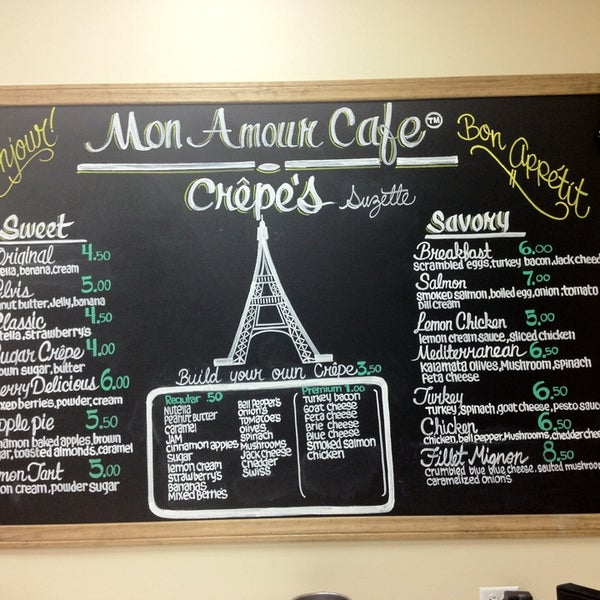 njour!
Mon Amour Cafe™
Bon Appétit
Crêpe's Suzette
Sweet
Original 4.50
ella,banana,cream
Elvis 5.00
nut butter,Jelly,banana
Classic 4.50
tella,strawberry's
Sugar Crêpe 4.00
own sugar,butter
Berry Delicious 6.00
ixed berries,powder,cream
Apple pie 5.50
nnamon baked apples,brown
gar,toasted almonds,caramel
emon Tart 5.00
on cream,powder sugar
Build your own Crêpe 3.50
Regular .50
Nutella
Peanut Butter
caramel
JAM
cinnamon apples
sugar
lemon cream
strawberry's
Bananas
Mixed Berrie's
Bell Pepper's
onion's
Tomatoes
olives
spinach
Mushrooms
Jack cheese
chadder
Swiss
Premium 1.00
Turkey bacon
Goat cheese
Feta cheese
Brie cheese
Blue cheese
smoked salmon
Chicken
Savory
Breakfast 6.00
scrambled eggs,turkey bacon,Jack cheed
Salmon 7.00
smoked salmon,boiled egg,onion,tomato
Dill cream
Lemon Chicken 5.00
lemon cream sauce,sliced chicken
Mediterranean 6.50
Kalamata olives,Mushroom,spinach
Feta cheese
Turkey 6.50
Turkey,spinach,goat cheese,pesto sauc
Chicken 6.50
chicken,bell pepper,Mushrooms,chedder chee
Fillet Mignon 8.50
crumbled blue blue cheese,sauted mushroo
caramelized onions